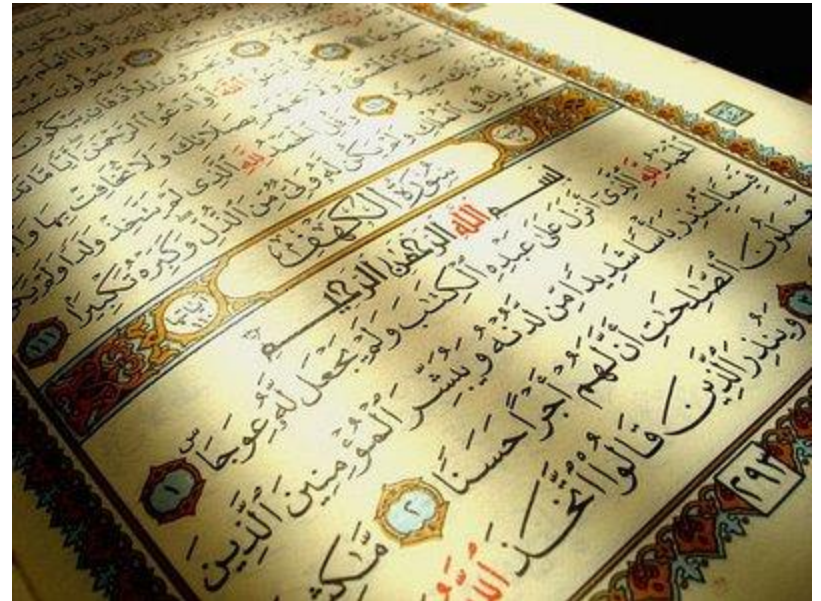 وَيَخِرُّونَ لِلْأَذْقَانِ يَبْكُونَ
ٱللَّهَ أَوِ ٱدْعُوا۟ ٱلرَّحْمَٰنَ أَيًّا مَّا تَدْ
وَلَا تَجْهَرْ بِصَلَاتِكَ وَلَا تُخَافِتْ بِهَا وَٱ
سَبِيلًا وَقُلِ ٱلْحَمْدُ لِلَّهِ ٱلَّذِى لَمْ يَتَّخِذْ وَلَدًا وَلَمْ يَكُن
فِى ٱلْمُلْكِ وَلَمْ يَكُن لَّهُۥ وَلِىٌّ مِّنَ ٱلذُّلِّ وَكَبِّرْهُ تَكْبِيرًا ١١١
سُورَةُ ٱلْكَهْفِ
بِسْمِ ٱللَّهِ ٱلرَّحْمَٰنِ ٱلرَّحِيمِ
ٱلْحَمْدُ لِلَّهِ ٱلَّذِىٓ أَنزَلَ عَلَىٰ عَبْدِهِ ٱلْكِتَٰبَ وَلَمْ يَجْعَل لَّهُۥ عِوَجَا ۜ ١
قَيِّمًا لِّيُنذِرَ بَأْسًا شَدِيدًا مِّن لَّدُنْهُ وَيُبَشِّرَ ٱلْمُؤْمِنِينَ ٱلَّذِينَ
يَعْمَلُونَ ٱلصَّٰلِحَٰتِ أَنَّ لَهُمْ أَجْرًا حَسَنًا ٢ مَّٰكِثِ
٣ وَيُنذِرَ ٱلَّذِينَ قَالُوا۟ ٱتَّخَذَ ٱللَّهُ
٢٩٣